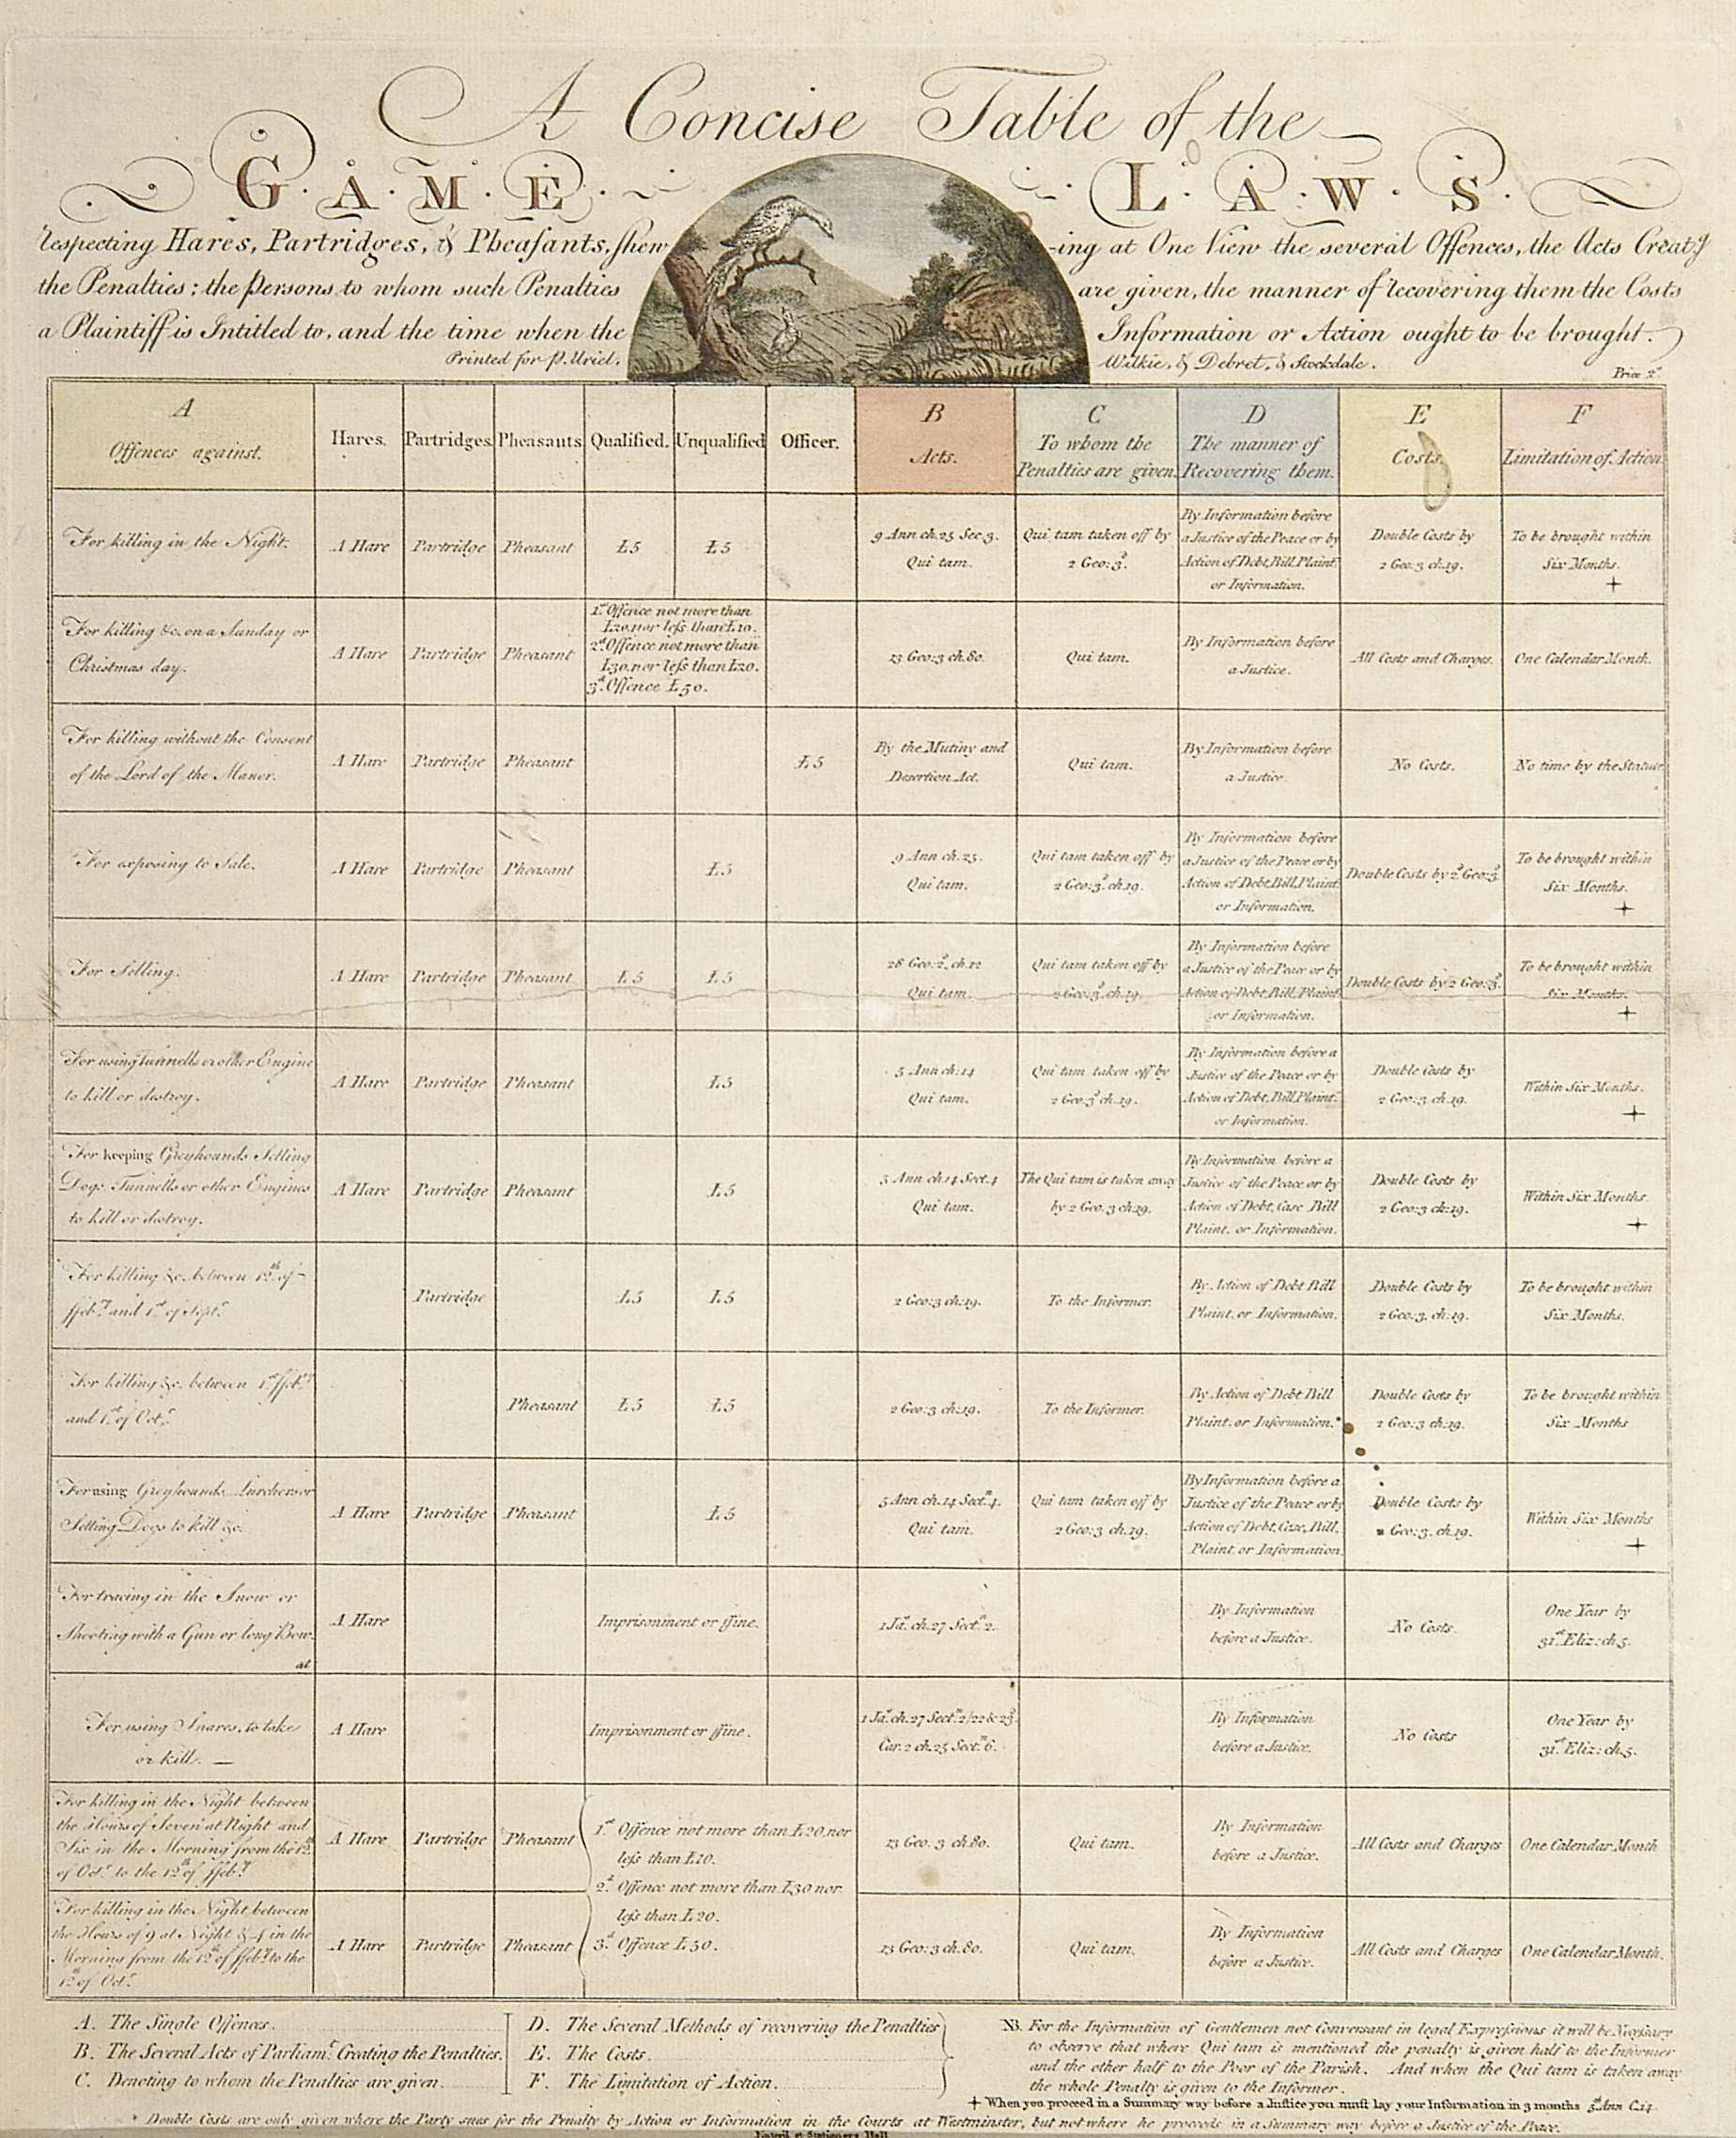 A Concise Table of the
G.A.M.E. L.A.W.S.
respecting Hares, Partridges, & Pheasants, shew-ing at One View the several Offences, the Acts Creatg
the Penalties; the persons to whom such Penalties are given, the manner of recovering them the Costs
a Plaintiff is Intitled to, and the time when the Information or Action ought to be brought.
Printed for P. Uriel, Wilkie, & Debret, & Stockdale.
Price 2s.
A Offences against.
Hares.
Partridges
Pheasants
Qualified.
Unqualified
Officer.
B Acts.
C To whom the Penalties are given.
D The manner of Recovering them.
E Costs.
F Limitation of Action
For killing in the Night.
A Hare
Partridge
Pheasant
£5
£5
9 Ann ch.25 Sec 3.
Qui tam.
Qui tam taken off by
2 Geo: 3d.
By Information before
a Justice of the Peace or by
Action of Debt, Bill, Plaint
or Information.
Double Costs by
2 Geo: 3 ch.19.
To be brought within
Six Months.
+
For killing &c. on a Sunday or
Christmas day.
A Hare
Partridge
Pheasant
1st Offence not more than
£20, nor less than £10.
2d Offence not more than
£30, nor less than £20.
3d Offence £50.
13 Geo: 3 ch.80.
Qui tam.
By Information before
a Justice.
All Costs and Charges.
One Calendar Month.
For killing without the Consent
of the Lord of the Manor.
A Hare
Partridge
Pheasant
£5
By the Mutiny and
Desertion Act.
Qui tam.
By Information before
a Justice.
No Costs.
No time by the Statute
For exposing to Sale.
A Hare
Partridge
Pheasant
£5
9 Ann ch.25.
Qui tam.
Qui tam taken off by
2 Geo: 3d ch.19.
By Information before
a Justice of the Peace or by
Action of Debt, Bill, Plaint
or Information.
Double Costs by 2d Geo: 3d
To be brought within
Six Months.
+
For Selling.
A Hare
Partridge
Pheasant
£5
£5
28 Geo: 2d, ch.12
Qui tam.
Qui tam taken off by
2 Geo: 3d ch.19.
By Information before
a Justice of the Peace or by
Action of Debt, Bill, Plaint
or Information.
Double Costs by 2 Geo: 3d
To be brought within
Six Months.
+
For using Tunnells or other Engine
to kill or destroy.
A Hare
Partridge
Pheasant
£5
5 Ann ch:14
Qui tam.
Qui tam taken off by
2 Geo: 3d ch.19.
By Information before a
Justice of the Peace or by
Action of Debt, Bill, Plaint
or Information.
Double Costs by
2 Geo: 3 ch.19.
Within Six Months.
+
For keeping Greyhounds Setting
Dogs Tunnells or other Engines
to kill or destroy.
A Hare
Partridge
Pheasant
£5
5 Ann ch.14 Sect.4
Qui tam.
The Qui tam is taken away
by 2 Geo. 3 ch.19.
By Information before a
Justice of the Peace or by
Action of Debt, Case Bill
Plaint, or Information.
Double Costs by
2 Geo: 3 ch:19.
Within Six Months.
+
For killing &c. between 12th of
ffeby and 1st of Septr
Partridge
£5
£5
2 Geo: 3 ch:19.
To the Informer.
By Action of Debt Bill
Plaint, or Information.
Double Costs by
2 Geo: 3. ch:19.
To be brought within
Six Months.
For killing &c. between 1st ffeby
and 1st of Octr
Pheasant
£5
£5
2 Geo: 3 ch:19.
To the Informer.
By Action of Debt Bill
Plaint, or Information.
Double Costs by
2 Geo: 3 ch.19.
To be brought within
Six Months
For using Greyhounds Lurchers or
Setting Dogs to kill &c.
A Hare
Partridge
Pheasant
£5
5 Ann ch.14 Sectn 4.
Qui tam.
Qui tam taken off by
2 Geo: 3 ch.19.
By Information before a
Justice of the Peace or by
Action of Debt, Case, Bill,
Plaint, or Information
Double Costs by
Geo: 3. ch.19.
Within Six Months
+
For tracing in the Snow or
Shooting with a Gun or long Bow
at
A Hare
Imprisonment or ffine.
1 Jas. ch.27 Sectn 2.
By Information
before a Justice.
No Costs.
One Year by
31st Eliz: ch.5.
For using Snares, to take
or kill.
A Hare
Imprisonment or ffine.
1 Jas. ch.27 Sectn 2/22 & 23d
Car. 2 ch.25 Sectn 6.
By Information
before a Justice.
No Costs
One Year by
31st Eliz: ch.5.
For killing in the Night between
the Hours of Seven at Night and
Six in the Morning from the 12th
of Octr to the 12th of ffeby
A Hare
Partridge
Pheasant
1st Offence not more than £20 nor
less than £10.
2d Offence not more than £30 nor
less than £20.
3d Offence £50.
13 Geo. 3 ch.80.
Qui tam.
By Information
before a Justice.
All Costs and Charges
One Calendar Month
For killing in the Night between
the Hours of 9 at Night & 4 in the
Morning from the 12th of ffeby to the
12th of Octr
A Hare
Partridge
Pheasant
13 Geo: 3 ch.80.
Qui tam.
By Information
before a Justice.
All Costs and Charges
One Calendar Month.
A. The Single Offences.
B. The Several Acts of Parliamt. Creating the Penalties.
C. Denoting to whom the Penalties are given.
D. The Several Methods of recovering the Penalties
E. The Costs.
F. The Limitation of Action.
NB. For the Information of Gentlemen not Conversant in legal Expressions it will be Necessary
to observe that where Qui tam is mentioned the penalty is given half to the Informer
and the other half to the Poor of the Parish. And when the Qui tam is taken away
the whole Penalty is given to the Informer.
+ When you proceed in a Summary way before a Justice you must lay your Information in 3 months 5th Ann C.14
* Double Costs are only given where the Party sues for the Penalty by Action or Information in the Courts at Westminster, but not where he proceeds in a Summary way before a Justice of the Peace.
Enter'd at Stationers Hall